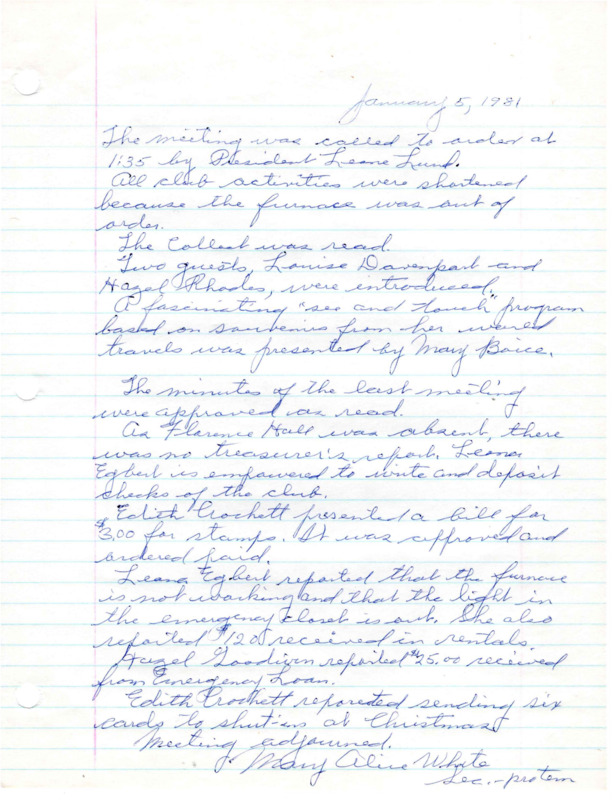 January 5, 1981
The meeting was called to order at
1:35 by President Leone Lund.
All club activities were shortened
because the furnace was out of
order.
The Collect was read.
Two guests, Louise Davenport and
Hazel Rhodes, were introduced.
A fascinating "see and touch" program
based on souvenirs from her varied
travels was presented by Mary Boice.
The minutes of the last meeting
were approved as read.
As Florence Hall was absent, there
was no treasurer's report. Leona
Egbert is empowered to write and deposit
checks of the club.
Edith Crockett presented a bill for
$3.00 for stamps. It was approved and
ordered paid.
Leona Egbert reported that the furnace
is not working and that the light in
the emergency closet is out. She also
reported $120 received in rentals.
Hazel reported $25.00 received
from Emergency Loan.
Edith Crockett reporeted sending six
cards to shut-ins at Christmas.
Meeting adjourned.
Mary Alice White
Sec. - protem